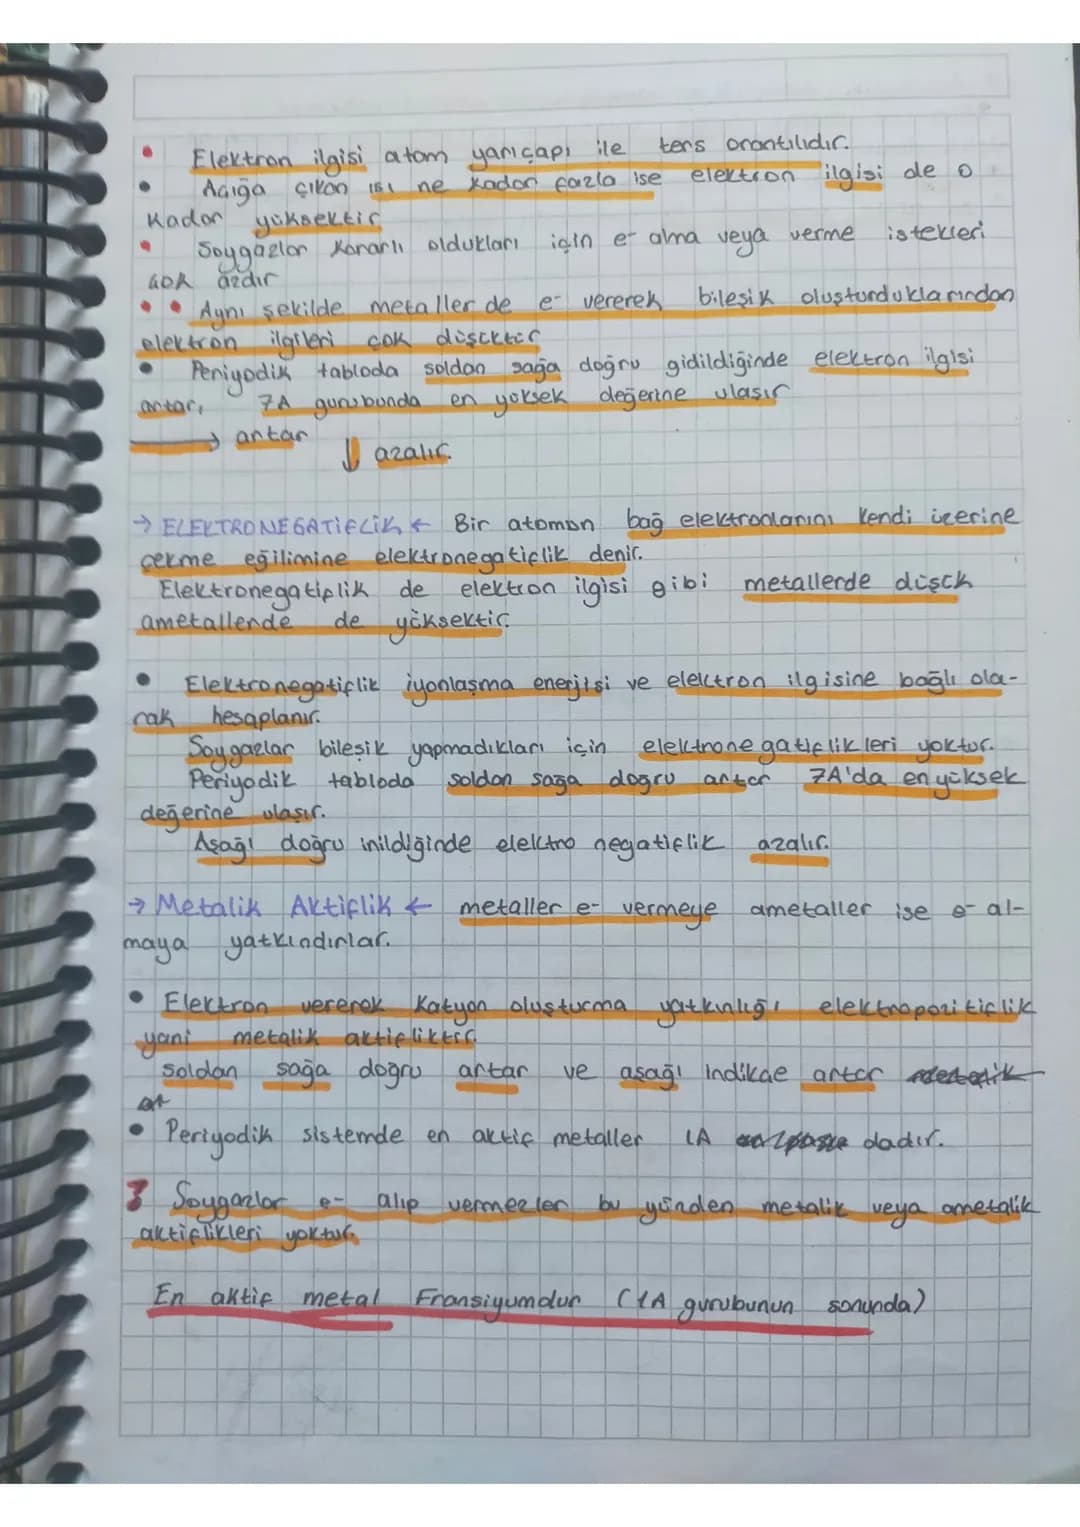 • Elektron ilgisi atom yarıçapı ile ters orantılıdır.
• Açığa çıkan ısı ne kadar fazla ise elektron ilgisi de o
kadar yüksektir
• Soygazlar kararlı oldukları için e- alma veya verme istekleri
çok azdır
• • Aynı şekilde metaller de e- vererek bileşik oluşturduklarından
elektron ilgileri çok düşüktür
• Periyodik tabloda soldan sağa doğru gidildiğinde elektron ilgisi
artar, 7A gurubunda en yüksek değerine ulaşır
→ artar
↓ azalır.
→ ELEKTRONEGATİFLİK ← Bir atomun bağ elektronlarını kendi üzerine
çekme eğilimine elektronegatiflik denir.
Elektronegatiflik de elektron ilgisi gibi metallerde düşük
ametallerde de yüksektir.
• Elektronegatiflik iyonlaşma enerjisi ve elektron ilgisine bağlı ola-
rak hesaplanır.
Soygazlar bileşik yapmadıkları için elektronegatiflikleri yoktur.
Periyodik tabloda soldan sağa doğru artar 7A'da en yüksek
değerine ulaşır.
Aşağı doğru inildiğinde elektro negatiflik azalır.
→ Metalik Aktiflik ← metaller e- vermeye ametaller ise e- al-
maya yatkındırlar.
• Elektron vererek Katyon oluşturma yatkınlığı elektropozitiflik
yani metalik aktifliktir.
soldan sağa doğru artar ve aşağı indikçe artar
• Periyodik sistemde en aktif metaller 1A dadır.
Soygazlar e- alıp vermezler bu yünden metalik veya ametalik
aktiflikleri yoktur.
En aktif metal Fransiyumdur (1A gurubunun sonunda)